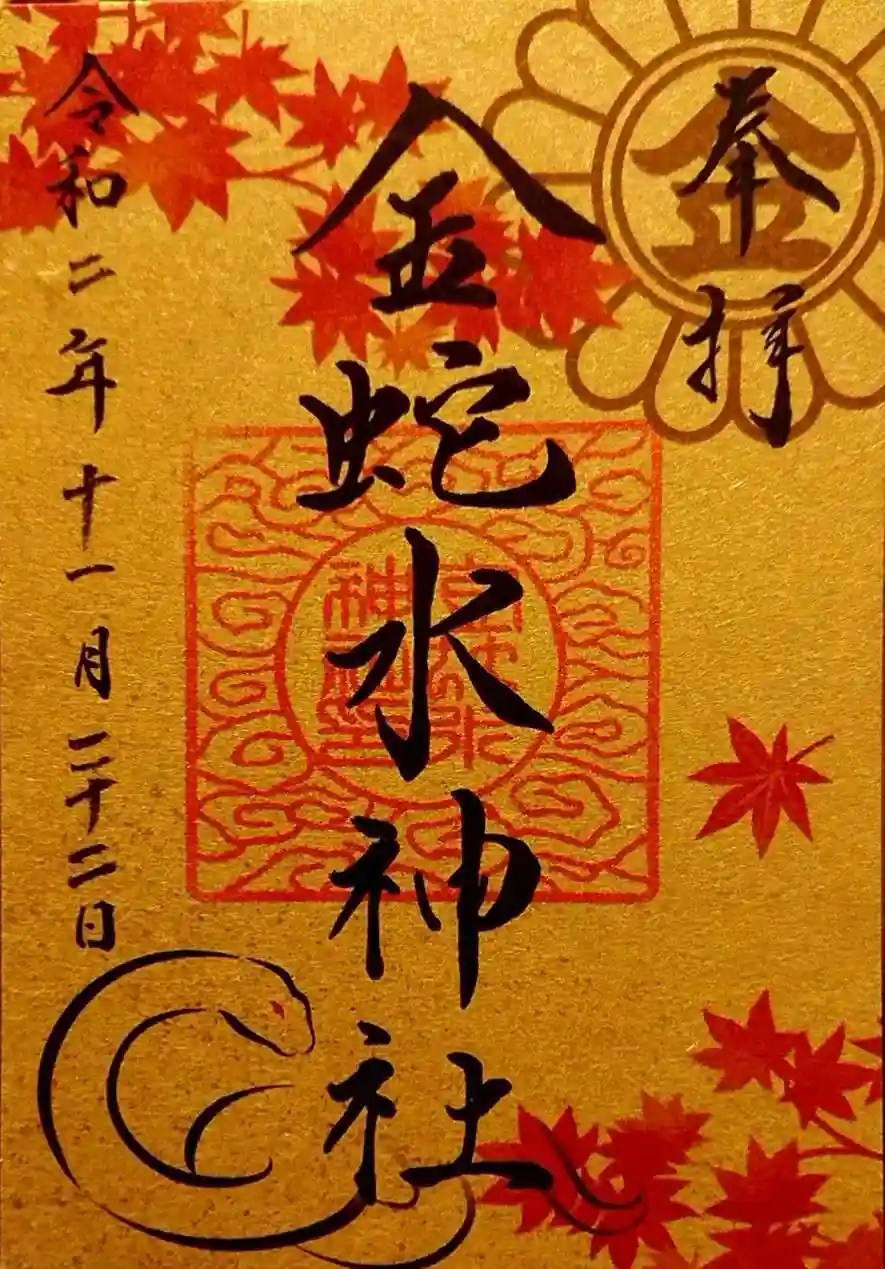 奉拝
金
金蛇水神社
令和二年十一月二十二日